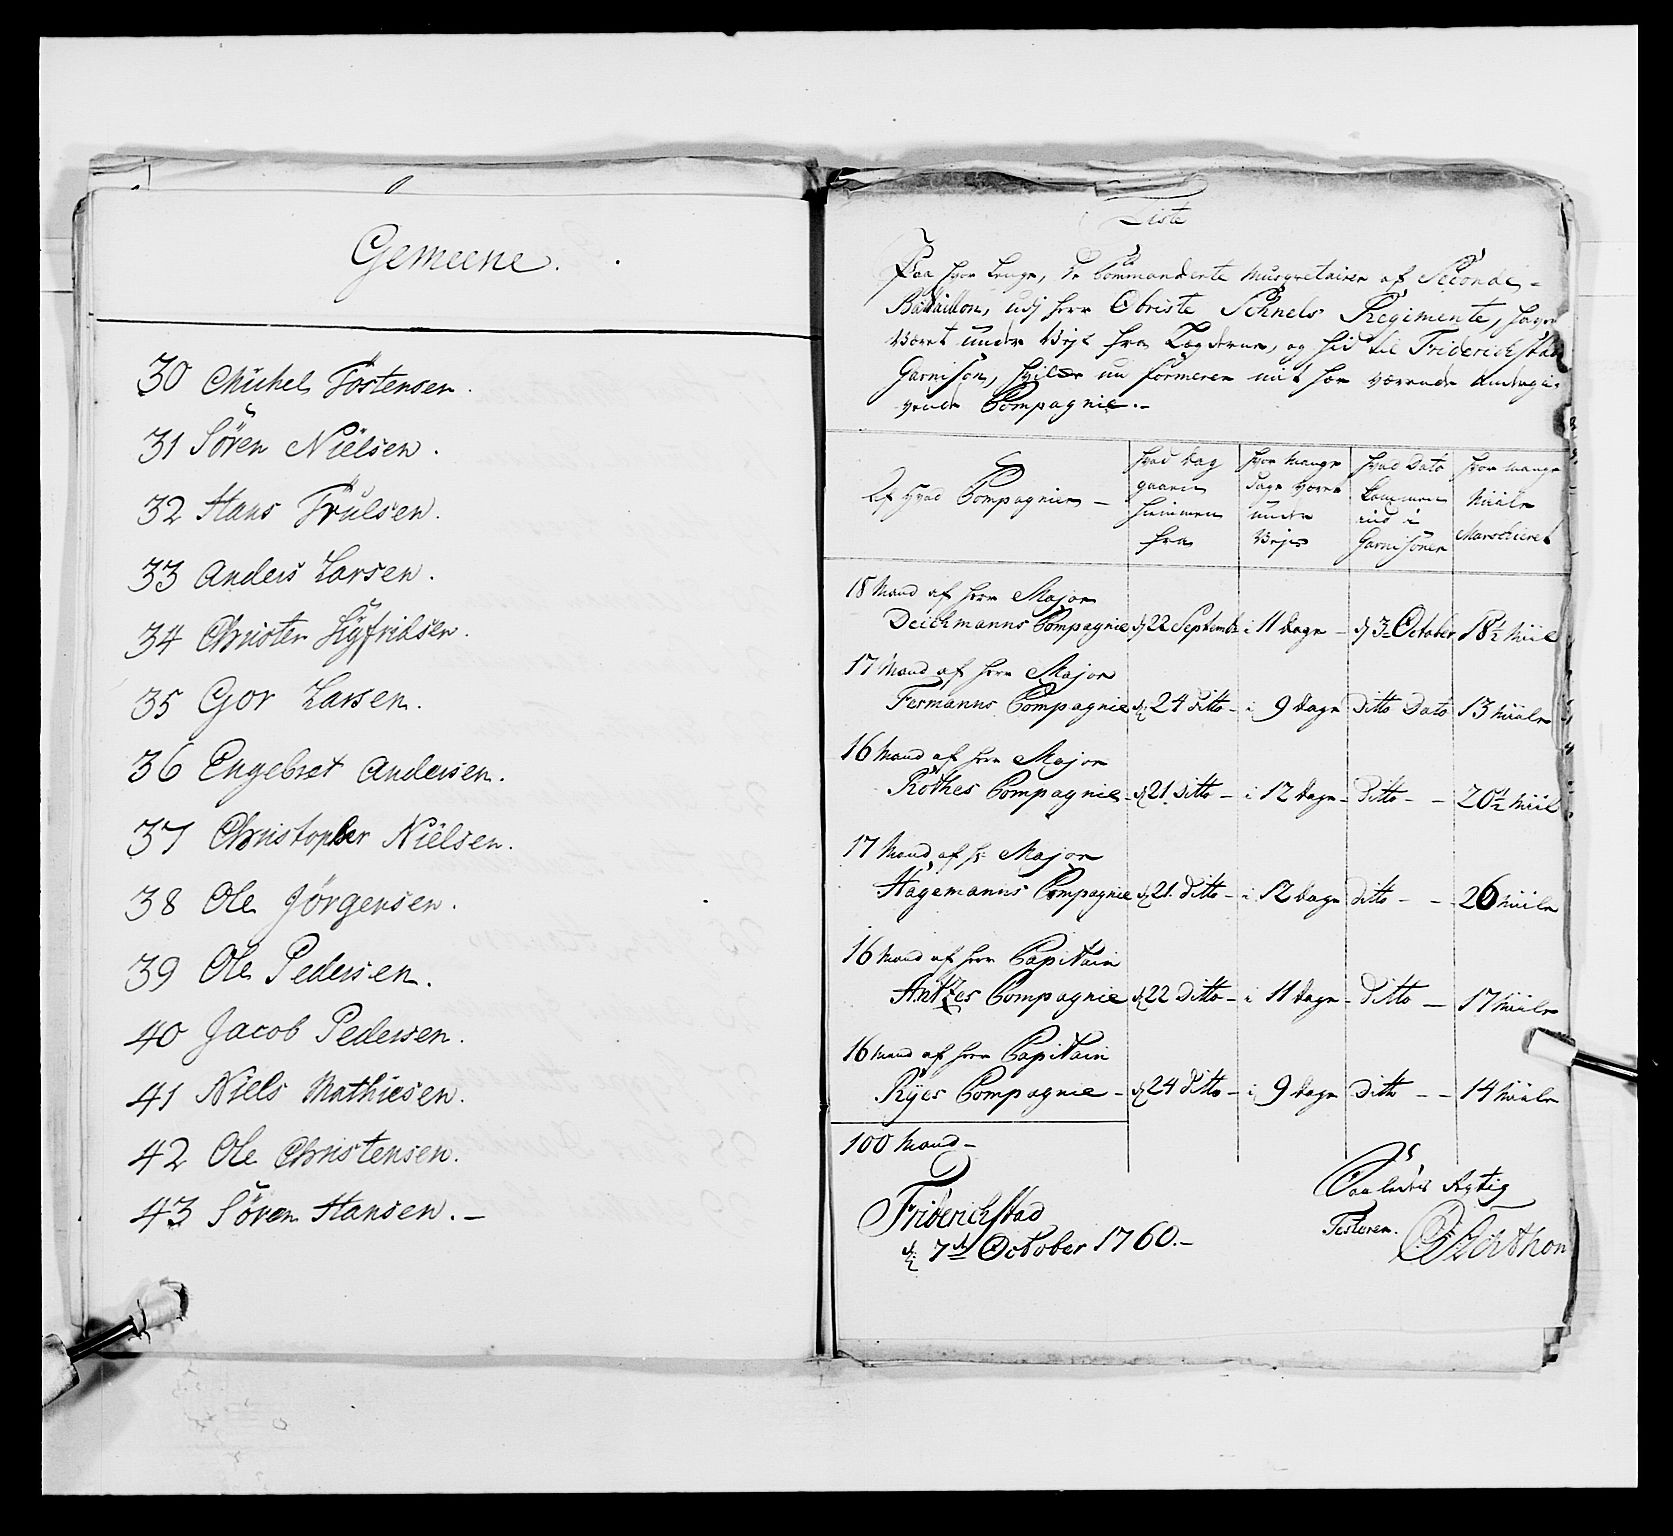 Gemeene.
30 Michel Tostensen.
31 Sören Nielsen.
32 Hans Trulsen.
33 Anders Larsen.
34 Christen Sigfridsen.
35 Gor Larsen.
36 Engebret Andersen.
37 Christopher Nielsen.
38 Ole Jörgensen.
39 Ole Pedersen.
40 Jacob Pedersen.
41 Niels Mathiesen.
42 Ole Christensen.
43 Sören Hansen. –
Liste
Paa hvor lenge, de Commanderte Musqvetairer af Seconde-
Battaillon, udj herr Obriste Schnels Regimente, haver
Været under Vejs fra Lægderne, og hid til Friderichstads
Garnison, hvilke nu formerer mit hær værende undergi-
vende Compagnie.-
Af hvad Compagnier –
hvad dag
gaaen
hiemmen
fra
hvor mange
dage være
under
Vejs
hvad Dato
kommen
ind i
Garnisonen
hvor mange
Miile
Marschieret
18 Mand af herr Major
Deichmanns Compagnie d 22 Septembr i 11 dage – d 3 October 18½ Miil
17 Mand af herr Major
Fermanns Compagnie d 24 ditto – i 9 dage ditto Dato 13 Miile
16 Mand af herr Major
Röthes Compagnie – d 21 ditto – i 12 dage – ditto – – 20½ Miil
17 Mand af hr: Major
Hagemanns Compagnie d 21 ditto – i 12 dage ditto – – 26 Miile
16 Mand af herr Capitain
Antzes Compagnie d 22 ditto – i 11 dage – ditto – 17 Miile
16 Mand af herr Capitain
Ryes Compagnie – d 24 ditto – i 9 dage ditto – – 14 Miile
100 Mand –
Friderichstad
d: 7de October 1760.–
Saaledes Rigtig
Testerer.